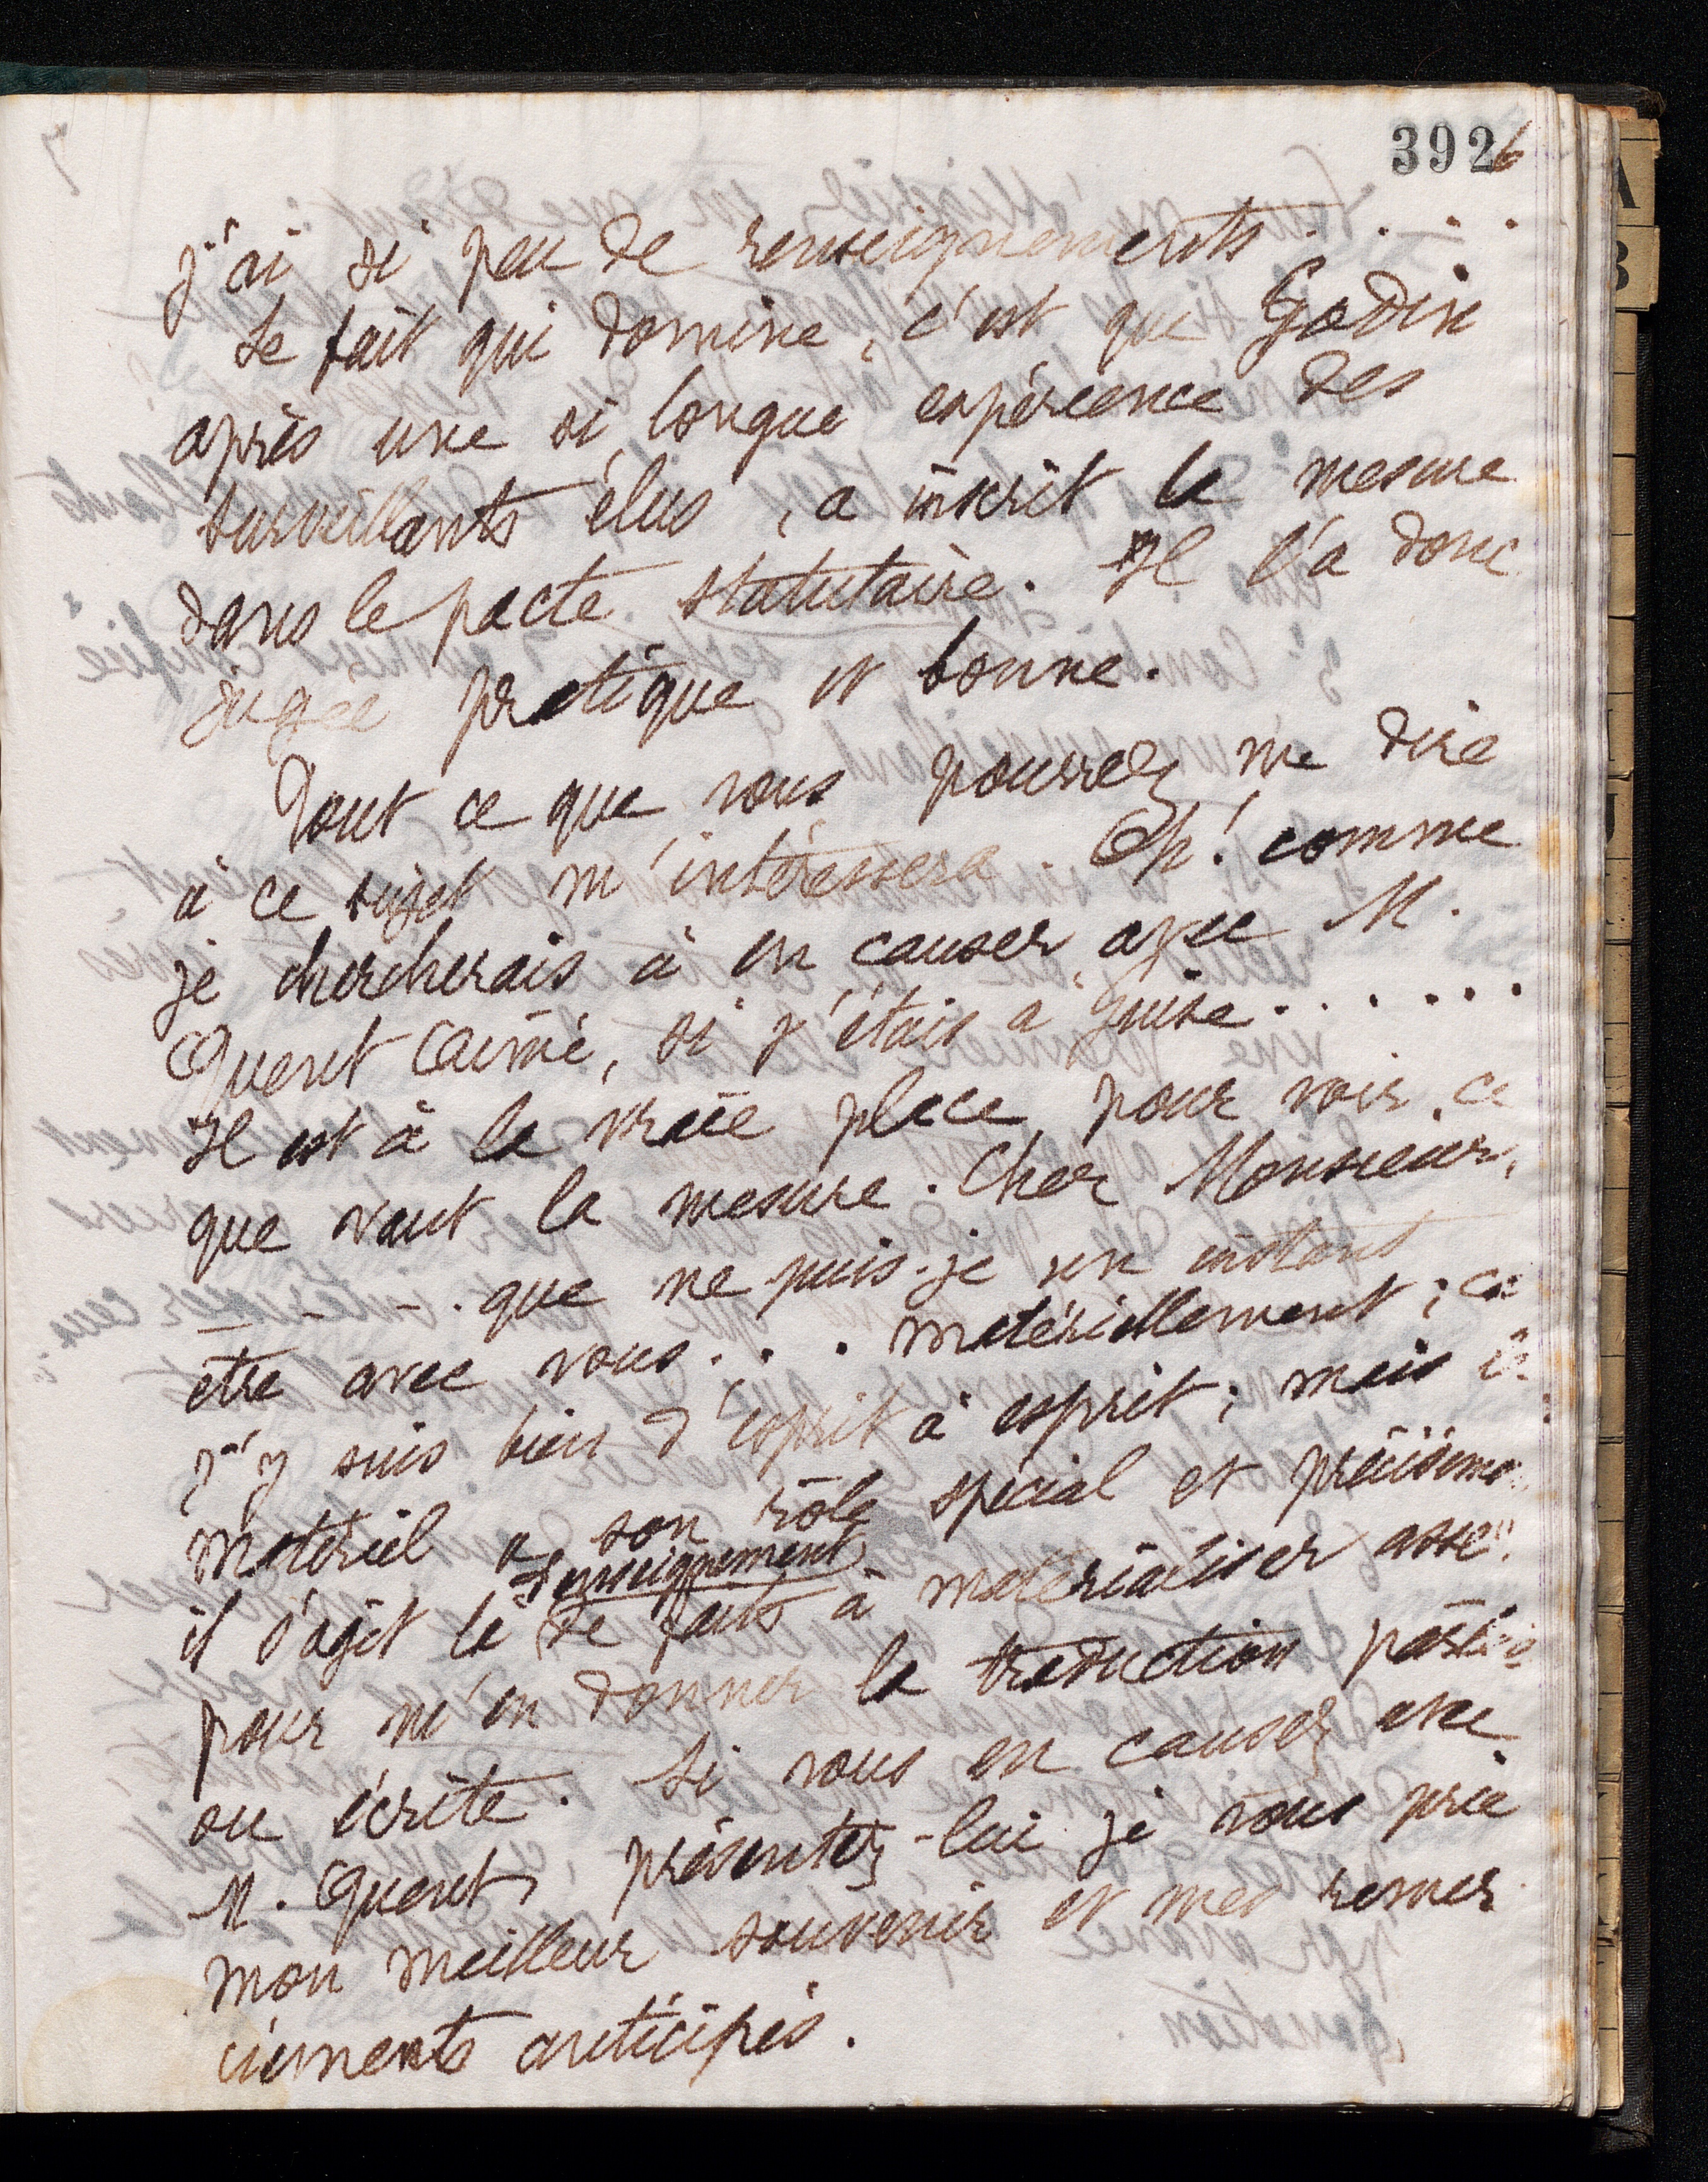 392
6
j'ai si peu de renseignements . . . .
Le fait qui domine, c'est que Godin
après une si longue expérience des
surveillants élus, a inscrit la mesure
dans le pacte statutaire. Il l'a donc
jugée pratique et bonne.
Tout ce que vous pourrez me dire
à ce sujet m'intéressera. Oh! comme
je chercherais à en causer avec M.
Quent Aimé, si j'étais à Guise . . . . . .
Il est à la vraie place pour voir ce
que vaut la mesure. Cher Monsieur,
_ _ _ . que ne puis-je un instant
être avec vous . . . matériellement; car
j'y suis bien d'esprit à esprit; mais le
matériel a son rôle spécial et précisément
il s'agit là de faits à matérialiser assez
d'enseignement
pour m'en donner la traduction parlée
ou écrite. Si vous en causez avec
M. Quent, présentez-lui je vous prie
mon meilleur souvenir et mes remer
ciements anticipés.